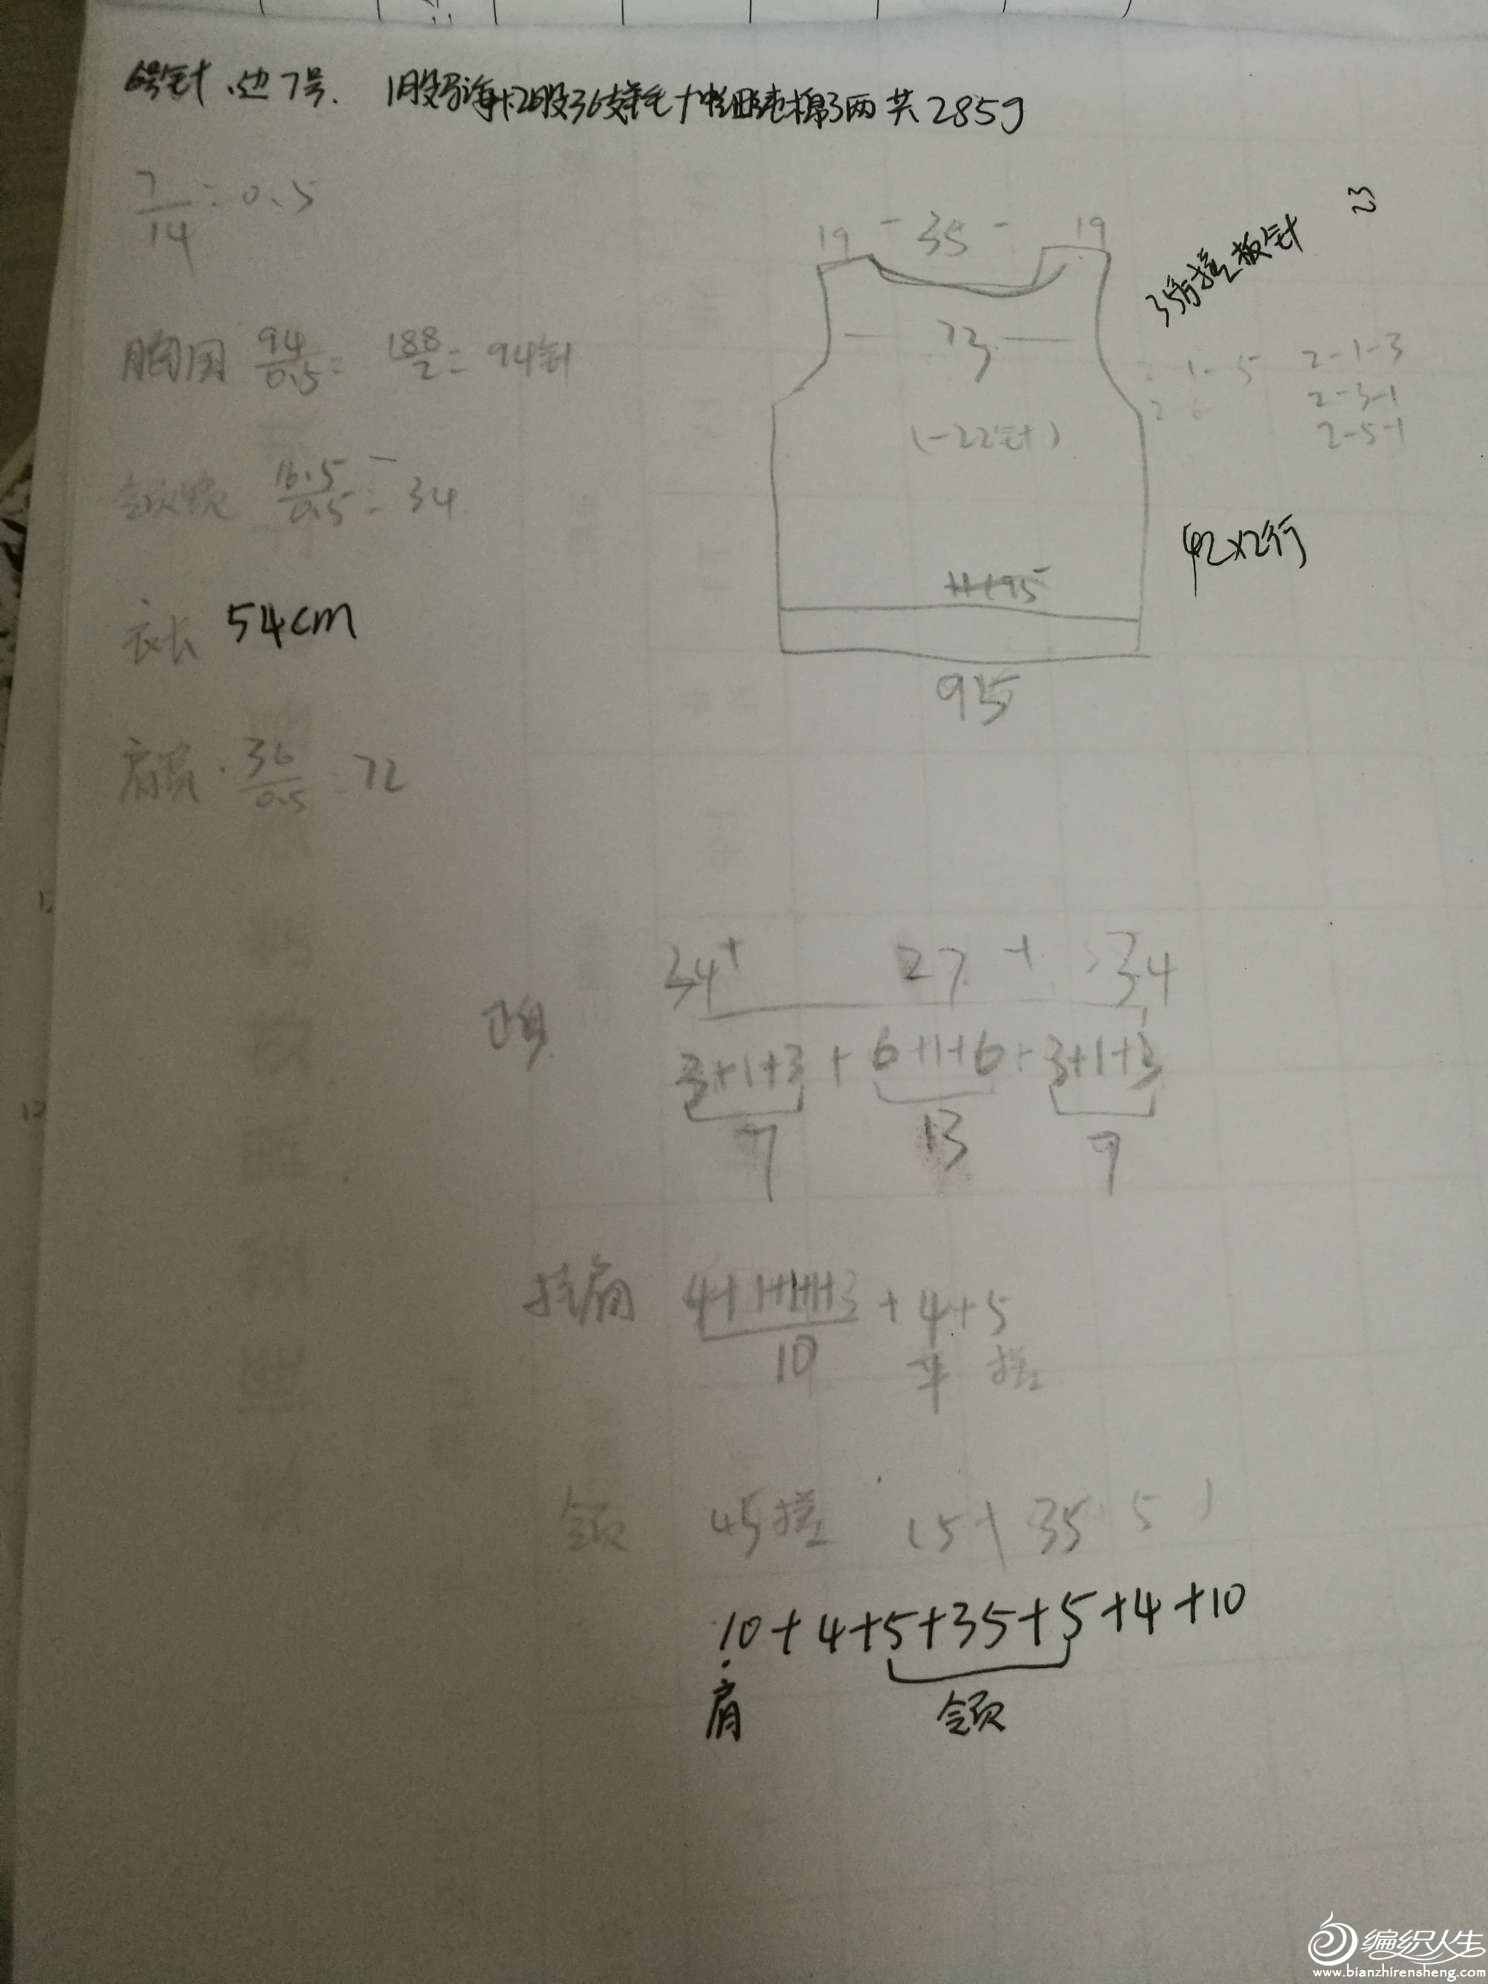 6号针、边7号. 1股马海+2股36支羊毛+中细纯棉3两 共285g
7/14=0.5
胸围 94/0.5= 188/2=94针
领宽 16.5/0.5=34
衣长 54cm
肩宽. 36/0.5=72
19 - 35 - 19
73
(-22针)
95
35行搓板针
23
2-1-5 2-1-3
2-3-1
2-5-1
42×2行
34+ 27 + 34
3+1+3 + 6+1+6 + 3+1+3
7 13 9
挂肩
10 + 4+5
平 搓
领 45搓
10+4+5+35+5+4+10
肩 领
编织人生
www.bianzhirensheng.com